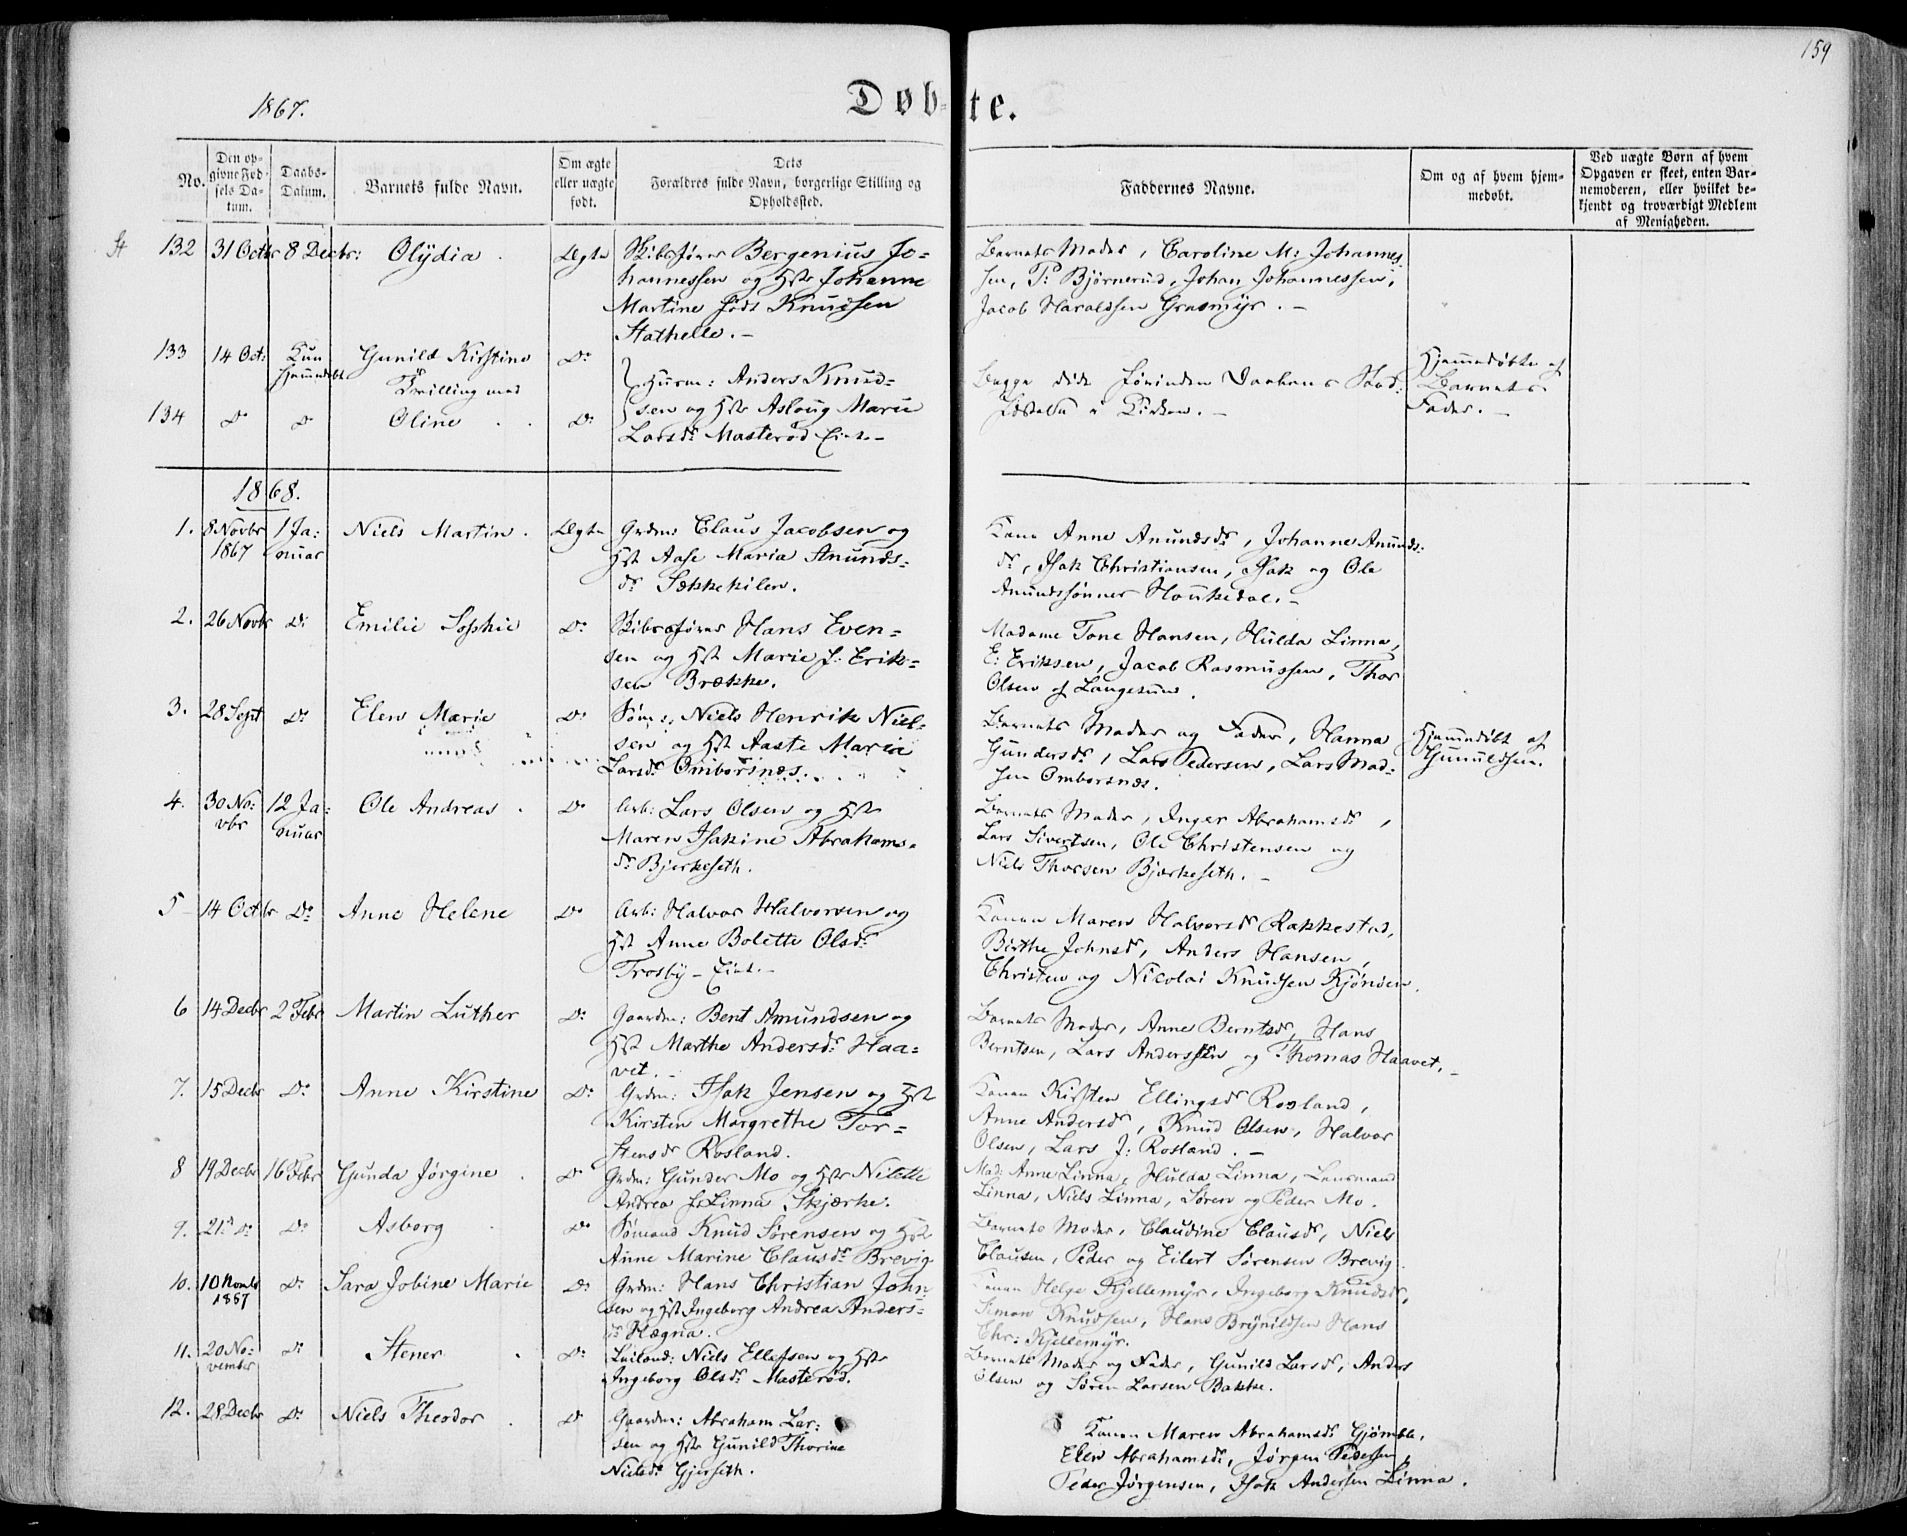 159
1867.
Døb-te.
No.
Den op-
givne Fød-
sels Da-
tum.
Daabs-
Datum.
Barnets fulde Navn.
Om ægte
eller uægte
født.
Dets
Forældres fulde Navn, borgerlige Stilling og
Opholdssted.
Faddernes Navne.
Om og af hvem hjem-
medøbt.
Ved uægte Børn af hvem
Opgaven er skeet, enten Bar-
nemoderen, eller hvilket be-
kjendt og troværdigt Medlem
af Menigheden.
St 132 31 Octbr 8 Decbr: Olydia Ægte Skibsfører Bergenius Jo-
hannessen og Hst Johanne
Martine født Knudsen
Stathelle. -
Barnets Moder, Caroline M: Johannes-
sen, P: Bjørnerud, Johan Johannessen,
Jacob Haraldsen Grasmyr. -
133 14 Oct: Kun Gunild Kirstine Do
hjemmedøbt Tvilling med
134 do do Oline Do
Husm: Anders Knud-
sen og Hst Aslaug Marie
Larsdr Masterød Eie. -
Begge døde førinden Daabens Stad-
fæstelse i Kirken. -
Hjemmedøbte af
Barnets
Fader. -
1868.
1. 8 Novbr 1 Ja- Niels Martin. Ægte Grdm: Claus Jacobsen og
1867 nuar Hst Aase Maria Anunds-
dr Sækkekilen.
Kone Anne Anundsdr, Johanne Anunds-
dr, Isak Christiansen, Isak og Ole
Anundssønner Houkedal. -
2. 26 Novbr Do Emilie Sophie Do Skibsfører Hans Even-
sen og Hst Marie f. Erik-
sen Brække.
Madame Tone Hansen, Hulda Linna,
E: Eriksen, Jacob Rasmussen, Thor
Olsen af Langesund.
3. 28 Sept Do Elen Marie Do Søm: Niels Henrik Niel-
sen og Hst Aaste Maria
Larsdr Omborsnes.
Barnets Moder og Fader, Hanna
Gundersdr, Lars Pedersen, Lars Mad-
sen Omborsnæs.
Hjemmedøbt af
4. 30 No- 12 Ja- Ole Andreas. Do Arb: Lars Olsen og Hst
vbr nuar Maren Isakine Abrahams-
dr Bjerkeseth.
Barnets Moder, Inger Abrahamsdr,
Lars Sivertsen, Ole Christensen og
Niels Thorsen Bjærkeseth. -
5 14 Octbr Do Anne Helene Do Arb: Halvor Halvorsen og
Hst Anne Bolette Olsdr
Trosby - Eiet. -
Konen Maren Halvorsdr Rakkestad,
Birthe Johnsdr, Anders Hansen,
Christen og Nicolai Knudsen Kjønsen.
6 14 Decbr 2 Febr Martin Luther Do Gaardm: Bent Amundsen og
Hst Marthe Andersdr Haa-
vet. -
Barnets Moder, Anne Berntsdr, Hans
Berntsen, Lars Anderssen og Thomas Haavet. -
7. 15 Decbr Do Anne Kirstine Do Grdm: Isak Jensen og Hst
Kirsten Margrethe Tor-
stensdr Rosland.
Konen Kirsten Ellingsdr Rosland,
Anne Andersdr, Knud Olsen, Halvor
Olsen, Lars J: Rosland. -
8 19 Decbr 16 Febr Gunda Jørgine Do Grdm: Gunder Mo og Hst Nilette
Andrea f. Linna Skjærke.
Mad: Anne Linna, Hulda Linna, Lensmand
Linna, Niels Linna, Søren og Peder Mo.
9. 21de do Do Asborg Do Sømand Knud Sørensen og Hst
Anne Marine Clausdr Brevig.
Barnets Moder, Claudine Clausdr, Niels
Clausen, Peder og Eilert Sørensen Brevig.
10. 10 Novbr Do Sara Jobine Marie Do Grdm: Hans Christian John-
1867 sen og Hst Ingeborg Andrea Anders-
dr Hægna.
Konen Helge Kjellemyr, Ingeborg Knudsdr,
Simon Knudsen, Hans Brynildsen Hans
Chr: Kjellemyr.
11. 20 No- Do Stener Do Leilend: Niels Ellefsen og Hst
vember Ingeborg Olsdr Masterød.
Barnets Moder og Fader, Gunild Larsdr, Anders
Olsen og Søren Larsen Bakke.
12. 28 Decbr Do Niels Theodor Do Gaardm: Abraham Lar-
sen og Hst Gunild Thorine
Nielsdr Gjerseth.
Konen Maren Abrahamsdr Gjømble,
Elen Abrahamsdr, Jørgen Pedersen,
Peder Jørgensen, Isak Andersen Linna.